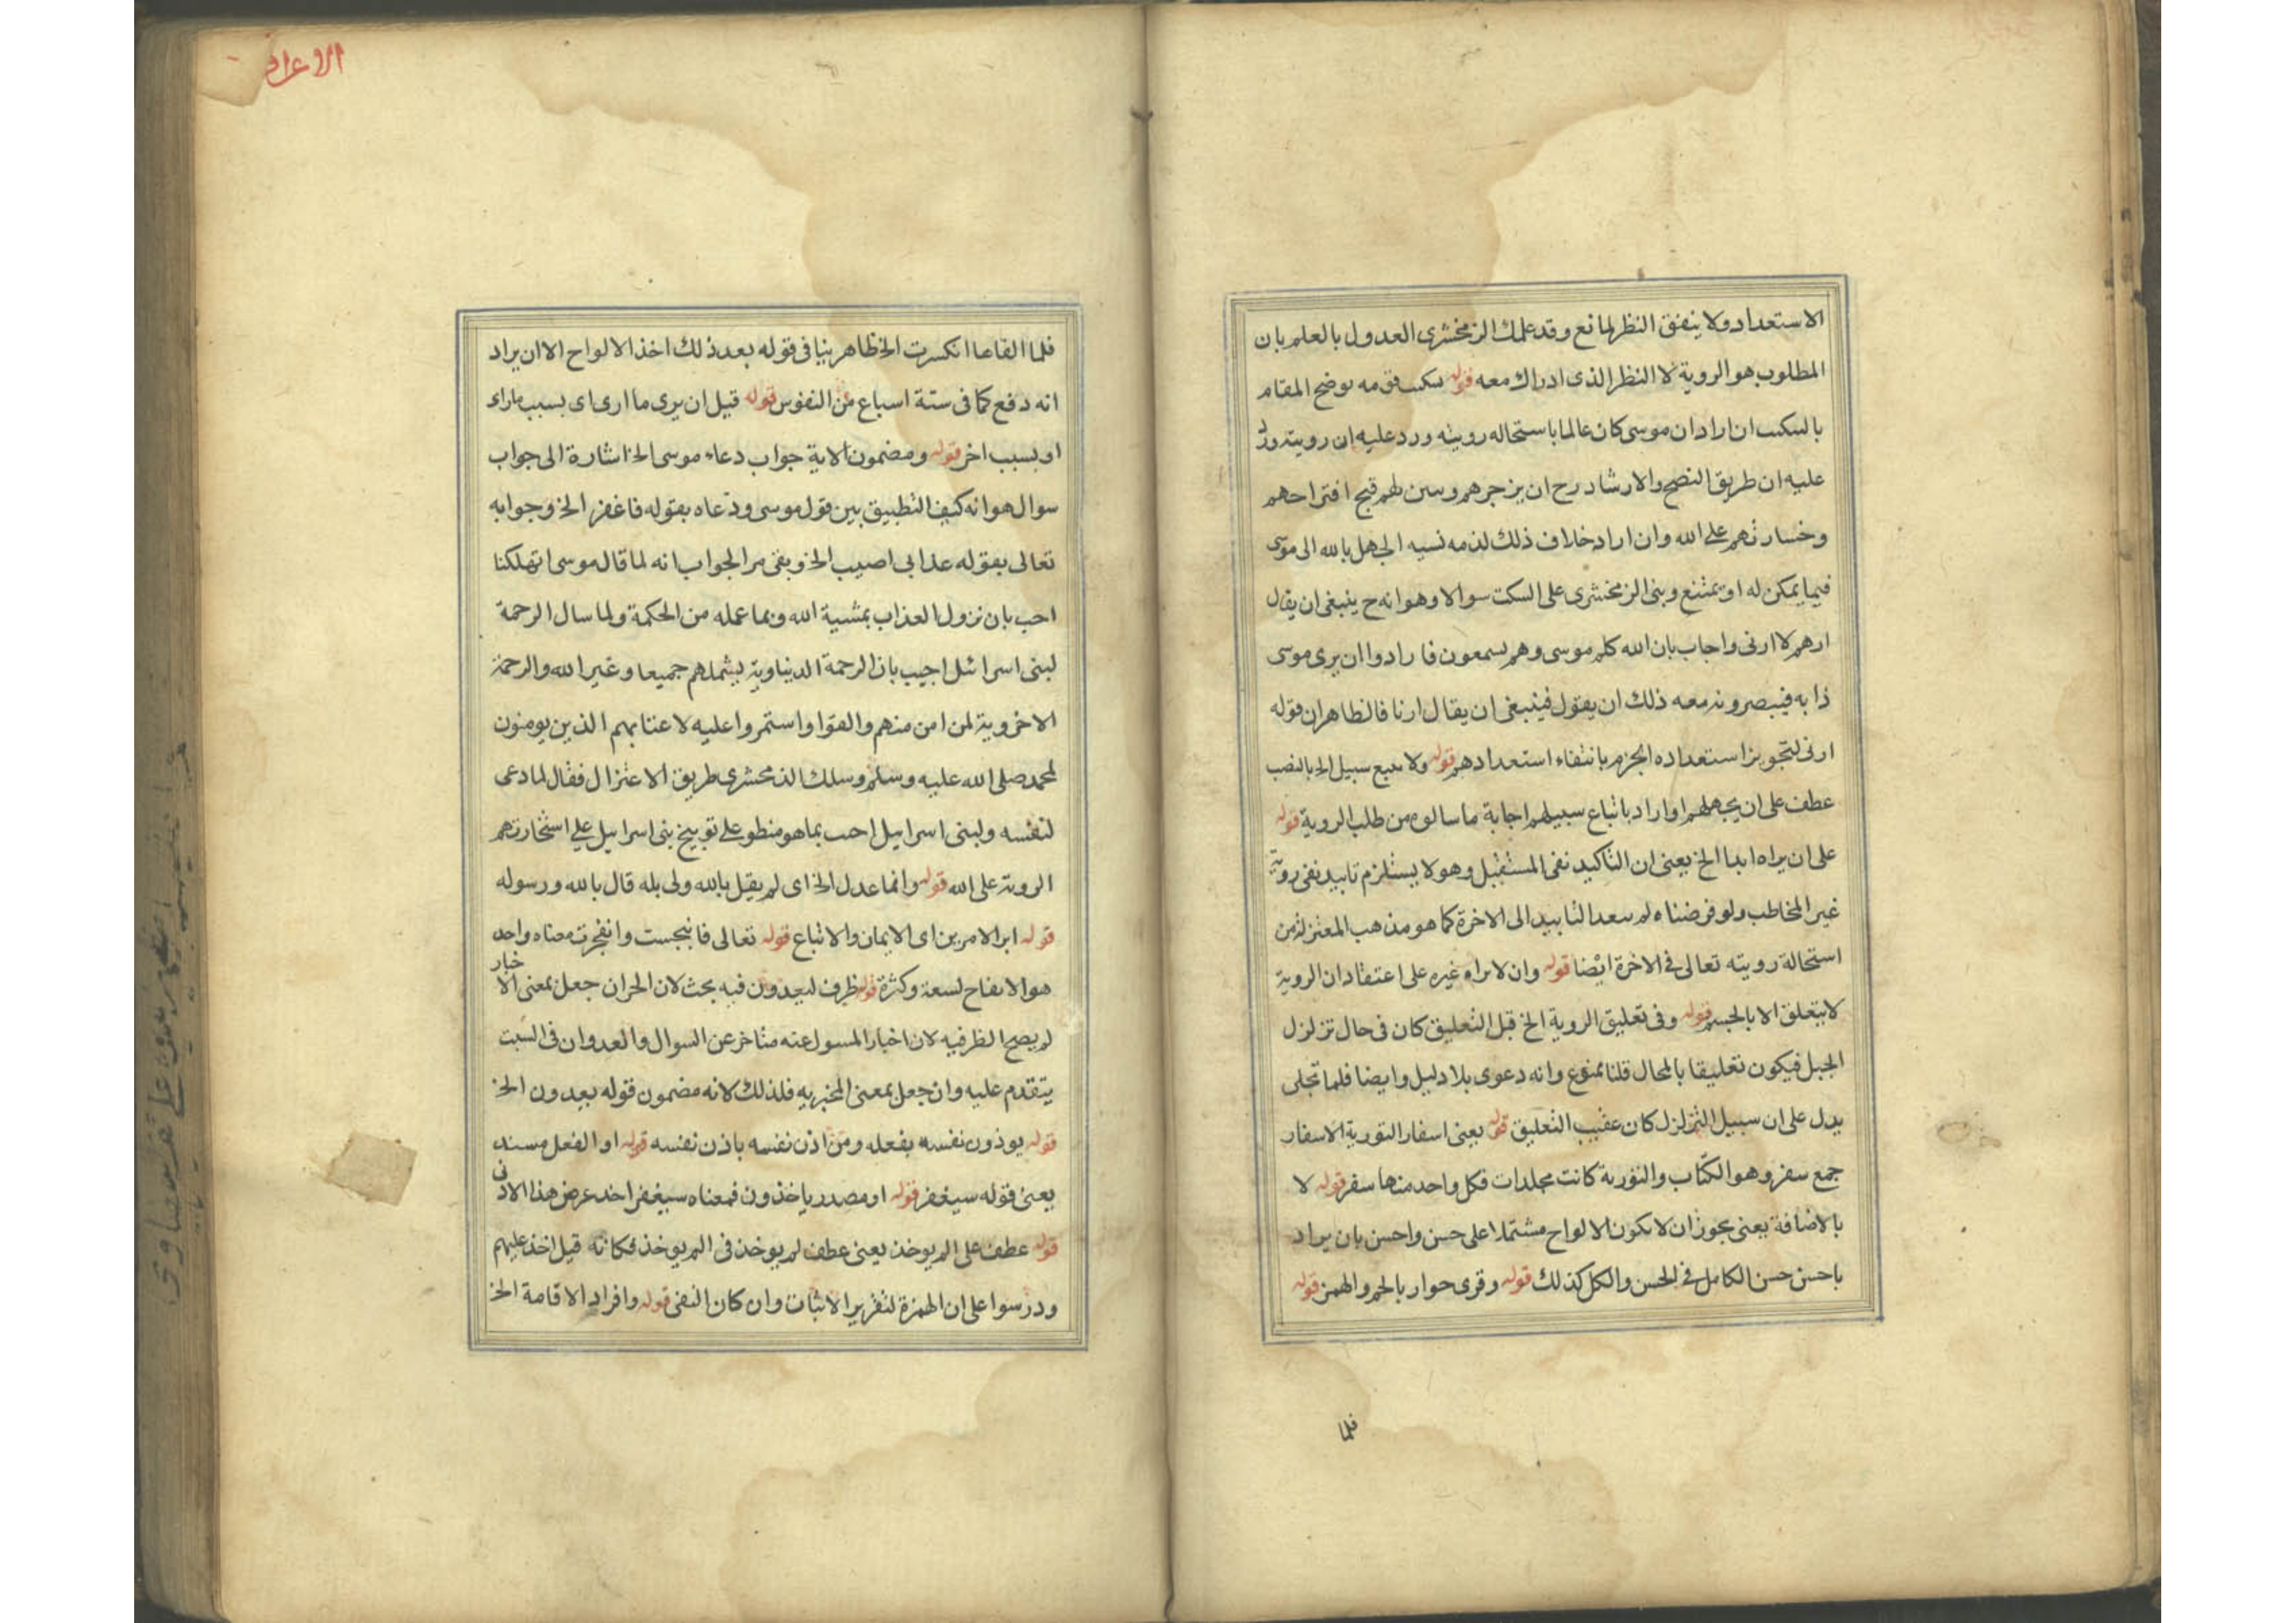 الاستعداد ولا ينفق النظر لمانع وقد علمك الزمخشرى العدول بالعلم بان
المطلوب هو الروية لا النظر الذى ادراك معه قوله وضح المقام
ان اراد ان موسى كان عالما باستحاله رويته ورد عليه ان رويته ورد
عليه ان طريق النصح والارشاد رح ان يزجرهم وسن لهم قبح افتراحهم
وخسارتهم على الله وان اراد خلاف ذلك لذمه نسبه الجهل بالله الى موسى
فيما يمكن له او يمتنع وبنى الزمخشرى على السكت سوالا وهو انه ح ينبغى ان يقال
ارهم لا ارنى واجاب بان الله كلم موسى وهم يسمعون فارادوا ان يرى موسى
ذابه فيبصرونه معه ذلك ان يقول فينبغى ان يقال ارنا فالظاهر ان قوله
ارنى لتجويز استعداده الجزم بانتفاء استعدادهم قوله ولا سبيل الخ بالنصب
عطف على ان يجهلهم او اراد باتباع سبيلهم اجابة ما سالوه من طلب الروية قوله
على ان يراه ابدا الخ يعنى ان التاكيد نفى المستقبل وهو لا يستلزم تابيد نفى روية
غير المخاطب ولو فرضناه لم سعد التابيد الى الاخرة كما هو مذهب المعتزلة من
استحالة رويته تعالى فى الاخرة ايضا قوله وان لا يراه غيره على اعتقاد ان الروية
لا يتعلق الا بالجسم قوله وفى تعليق الروية الخ قبل التعليق كان فى حال تزلزل
الجبل فيكون تعليقا بالمحال قلنا ممنوع وانه دعوى بلا دليل وايضا فلما تجلى
يدل على ان سبيل التزلزل كان عقيب التعليق قوله يعنى اسفار التورية الاسفار
جمع سفر وهو الكتاب والتورية كانت مجلدات فكل واحد منها سفر قوله لا
بالاضافة يعنى يجوز ان لا يكون الالواح مشتملا على حسن واحسن بان يراد
باحسن حسن الكامل فى الحسن والكل كذلك قوله وقرى حوار بالجم والهمز قوله
فلما
الاعراف
فلما القاها انكسرت الخ ظاهر ينافى قوله بعد ذلك اخذ الالواح الا ان يراد
انه دفع كما فى ستة اسباع من النفوس قوله قيل ان يرى ما ارى اى بسبب ماراء
او بسبب اخر قوله ومضمون الاية جواب دعاء موسى الخ اشارة الى جواب
سوال هو انه كيف التطبيق بين قول موسى ودعاه بقوله فاغفر الخ وجوابه
تعالى بقوله عذابى اصيب الخ وبقى مر الجواب انه لما قال موسى اتهلكنا
احب بان نزول العذاب بمشية الله وبما عمله من الحكمة ولما سال الرحمة
لبنى اسرائل اجيب بان الرحمة الدنياوية يشملهم جميعا وغير الله والرحمة
الاخروية لمن امن منهم والقوا واستمروا عليه لا عنا بهم الذين يومنون
لمحمد صلى الله عليه وسلم وسلك الذمحشرى طريق الاعتزال فقال لما دعى
لنفسه ولبنى اسرايل احب بما هو منطو على توبيخ بنى اسرايل على استخارتهم
الروية على الله قوله وانما عدل الخ اى لم يقل بالله ولى بله قال بالله ورسوله
قوله ابر الامرين اى الايمان والاتباع قوله تعالى فانبجست وانفجرت معناه واحد
هو الانفاح لسعة وكثرة قوله ظرف ليعدون فيه بحث لان الحران جعل بمعنى الاخبار
لم يصح الظرفيه لان اخبار المسول عنه متاخر عن السوال والعدوان فى السبت
يتقدم عليه وان جعل بمعنى المخبر به فلذلك لانه مضمون قوله يعدون الخ
قوله يوذون نفسه بفعله ومن اذن نفسه باذن نفسه قوله او الفعل مسند
يعنى قوله سيغفر قوله او مصدر ياخذون فمعناه سيغفر اخد عرض هذا الادنى
قوله عطف على الم يوخذ يعنى عطف لم يوخذ فى الم يوخذ فكانه قيل اخذ عليهم
ودرسوا على ان الهمزة لتقرير الاثبات وان كان النفى قوله وافراد الاقامة الخ